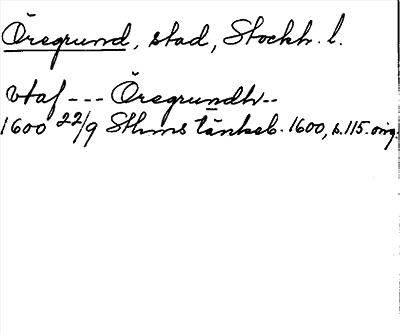 Öresgrund, stad, Stockh. l.
vtaf --- Öresgrundh--
1600 22/9 Sthms tänkeb. 1600, s. 115. orig.